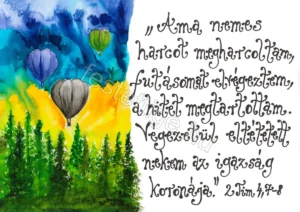 „Ama nemes
harcot megharcoltam,
futásomat elvégeztem,
a hitet megtartottam.
Végezetül eltétetett
nekem az igazság
koronája." 2.Tim 4,7-8